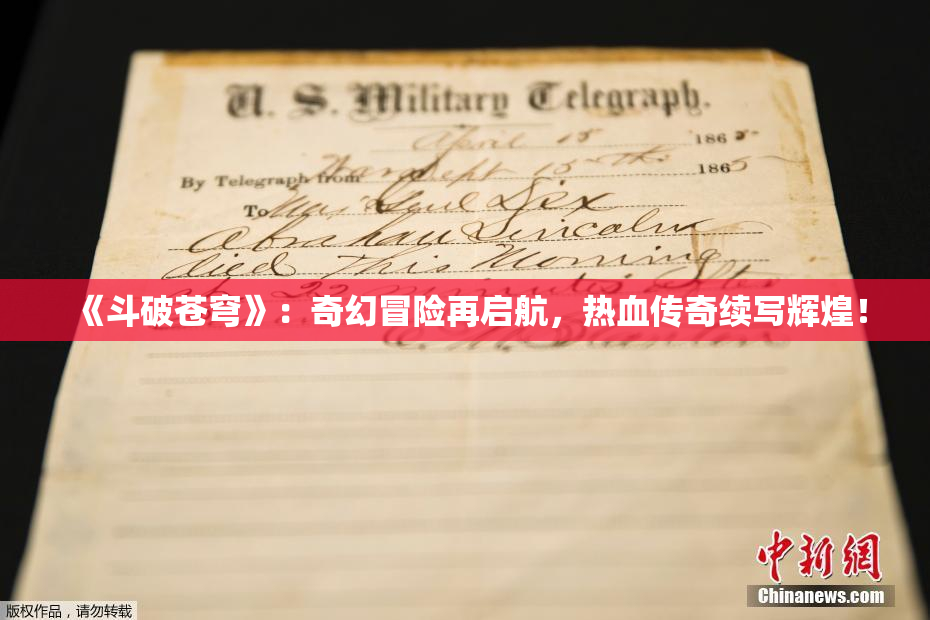 U. S. Military Telegraph.
April 15 1865
By Telegraph from War Dept 15th 1865
To Maj Genl Dix
Abraham Lincoln
died This Morning
at 22 minutes after
《斗破苍穹》：奇幻冒险再启航，热血传奇续写辉煌！
E. M. Stanton
中新网
版权作品，请勿转载
Chinanews.com